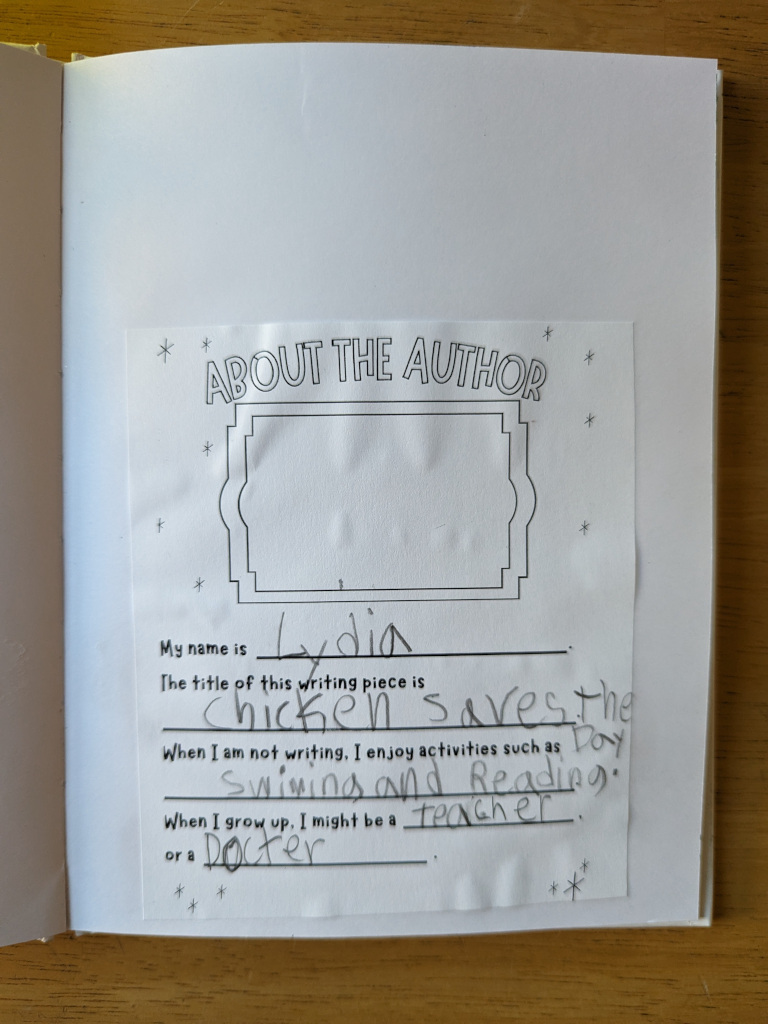 ABOUT THE AUTHOR
My name is Lydia.
The title of this writing piece is
Chicken Saves the
Day
When I am not writing, I enjoy activities such as
Swiming and Reading.
When I grow up, I might be a teacher.
or a Docter.